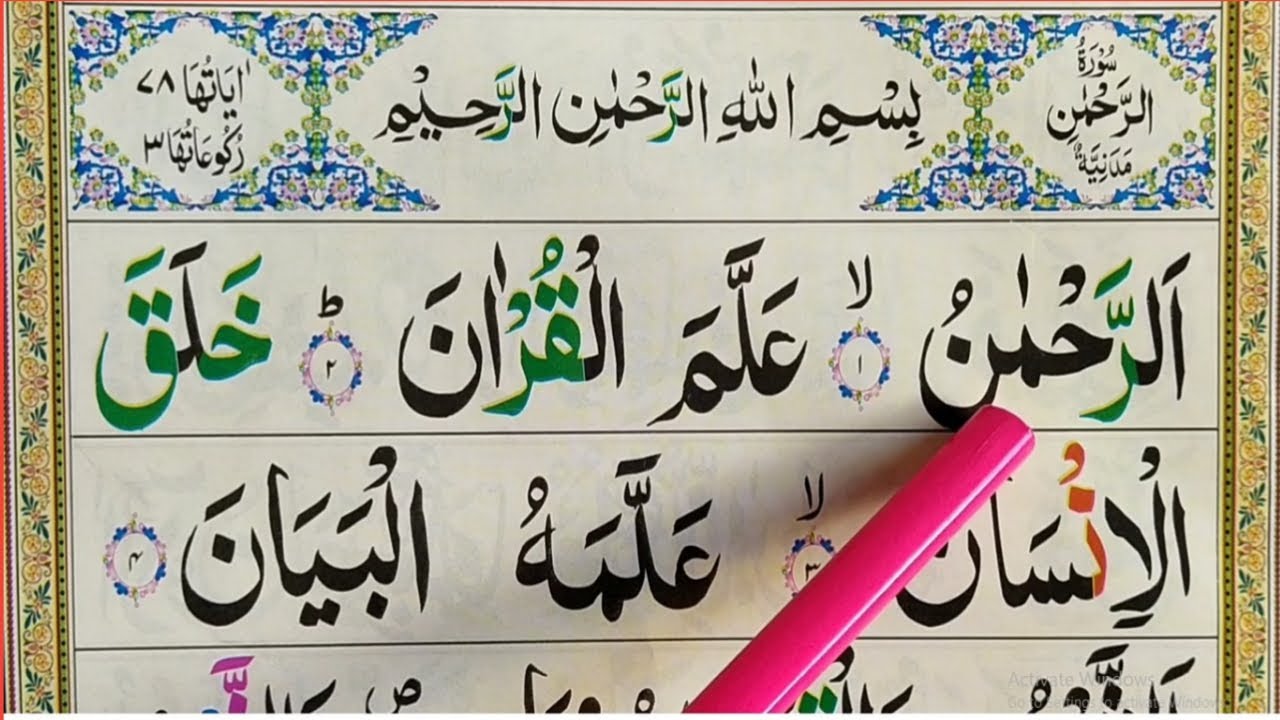 سُوْرَةُ
الرَّحْمٰنِ
مَدَنِيَّةٌ
بِسْمِ اللهِ الرَّحْمٰنِ الرَّحِيْمِ
اٰيَاتُهَا ٧٨
رُكُوْعَاتُهَا ٣
اَلرَّحْمٰنُ ۙ ١ عَلَّمَ الْقُرْاٰنَ ؕ ٢ خَلَقَ
الْاِنْسَانَ ۙ ٣ عَلَّمَهُ الْبَيَانَ ۴
Activate Windows
Go to Settings to activate Windows.